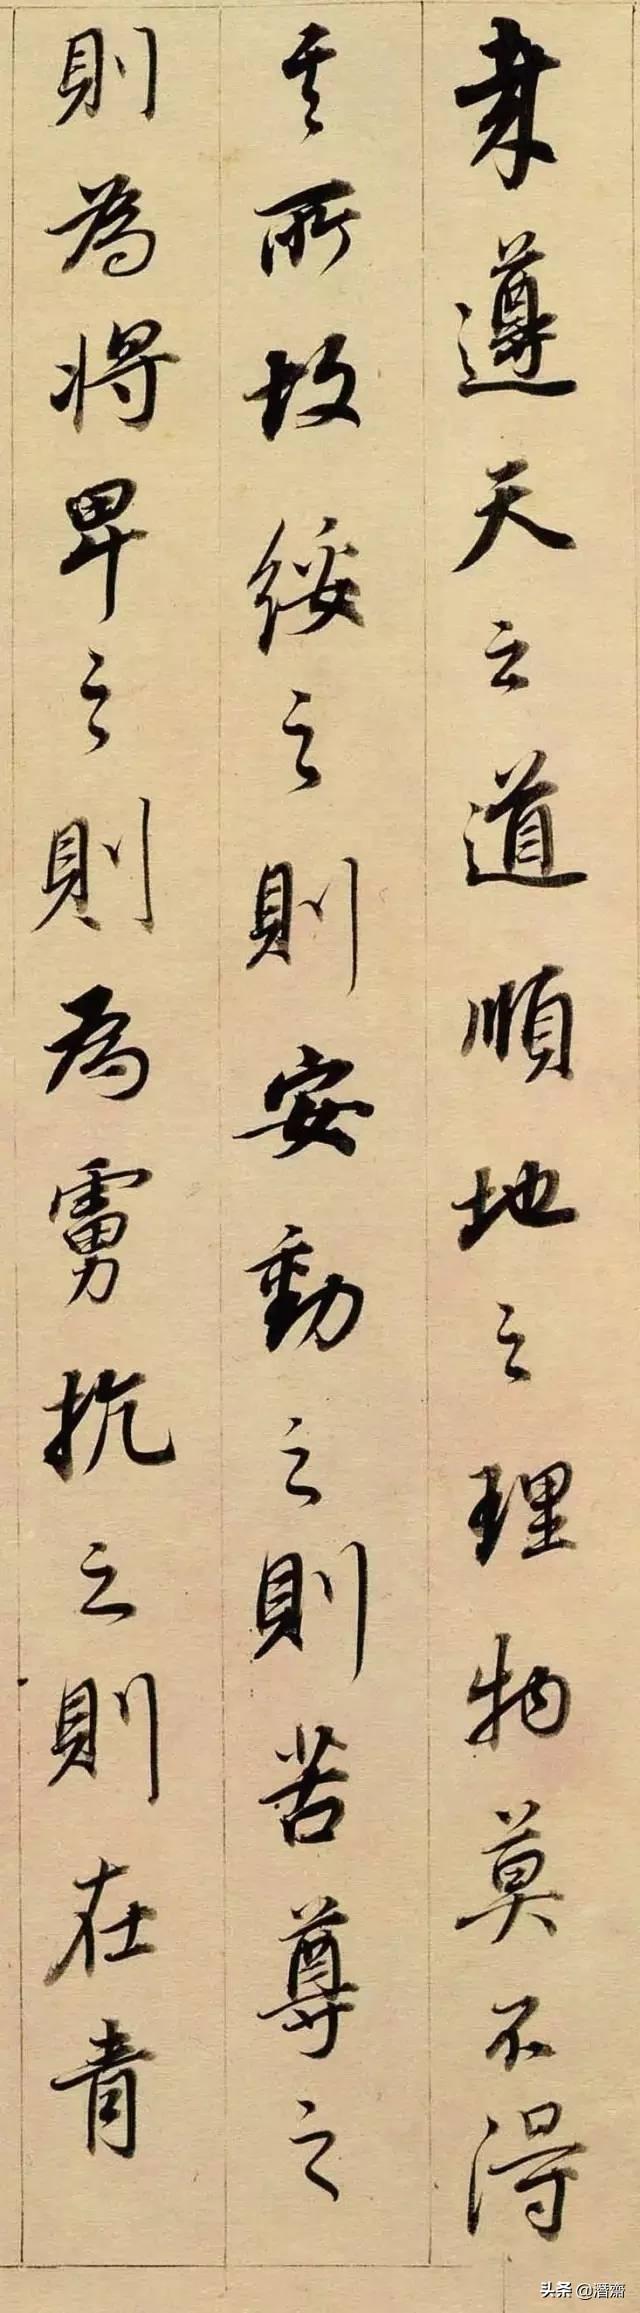 哉遵天之道順地之理物莫不得
其所故綏之則安動之則苦尊之
則為將卑之則為虜抗之則在青
头条 @潛齋